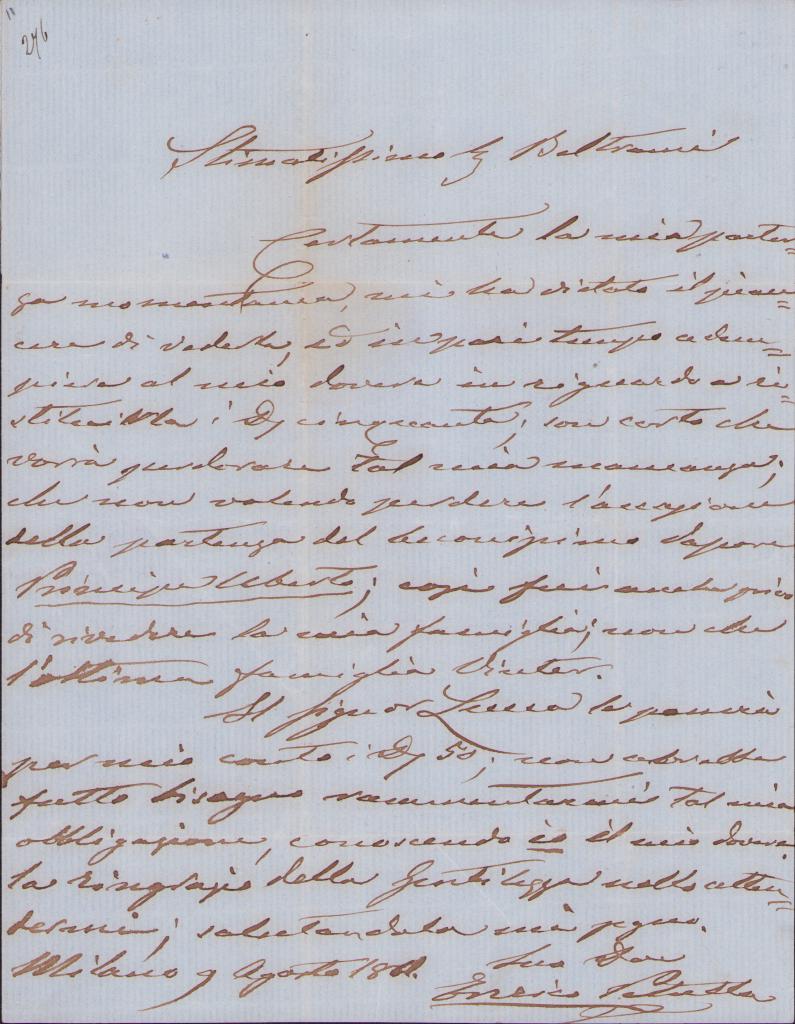 276
Stimatissimo Sg Beltrami
Certamente la mia parten-
za momentanea, mi ha vietato il piac-
cere di vederla, ed in pari tempo adem-
piere al mio dovere in riguardo a re-
stituirla i D cinquanta, son certo che
vorrà perdonare tal mia mancanza;
che non volendo perdere l'occasione
della partenza del buonissimo Vapore
Principe Uberto; così fui anche privo
di rivedere la mia famiglia; non che
l'ottima famiglia Vinter.
Il Signor Lucca le passerà
per mio conto i D 50; non avrebbe
fatto bisogno rammentarmi tal mia
obbligazione, conoscendo io il mio dovere.
La ringrazio della Gentilezza nello atten-
dermi; salutandola mi segno.
Milano 9 Agosto
Suo Dev
Enrico Petrella